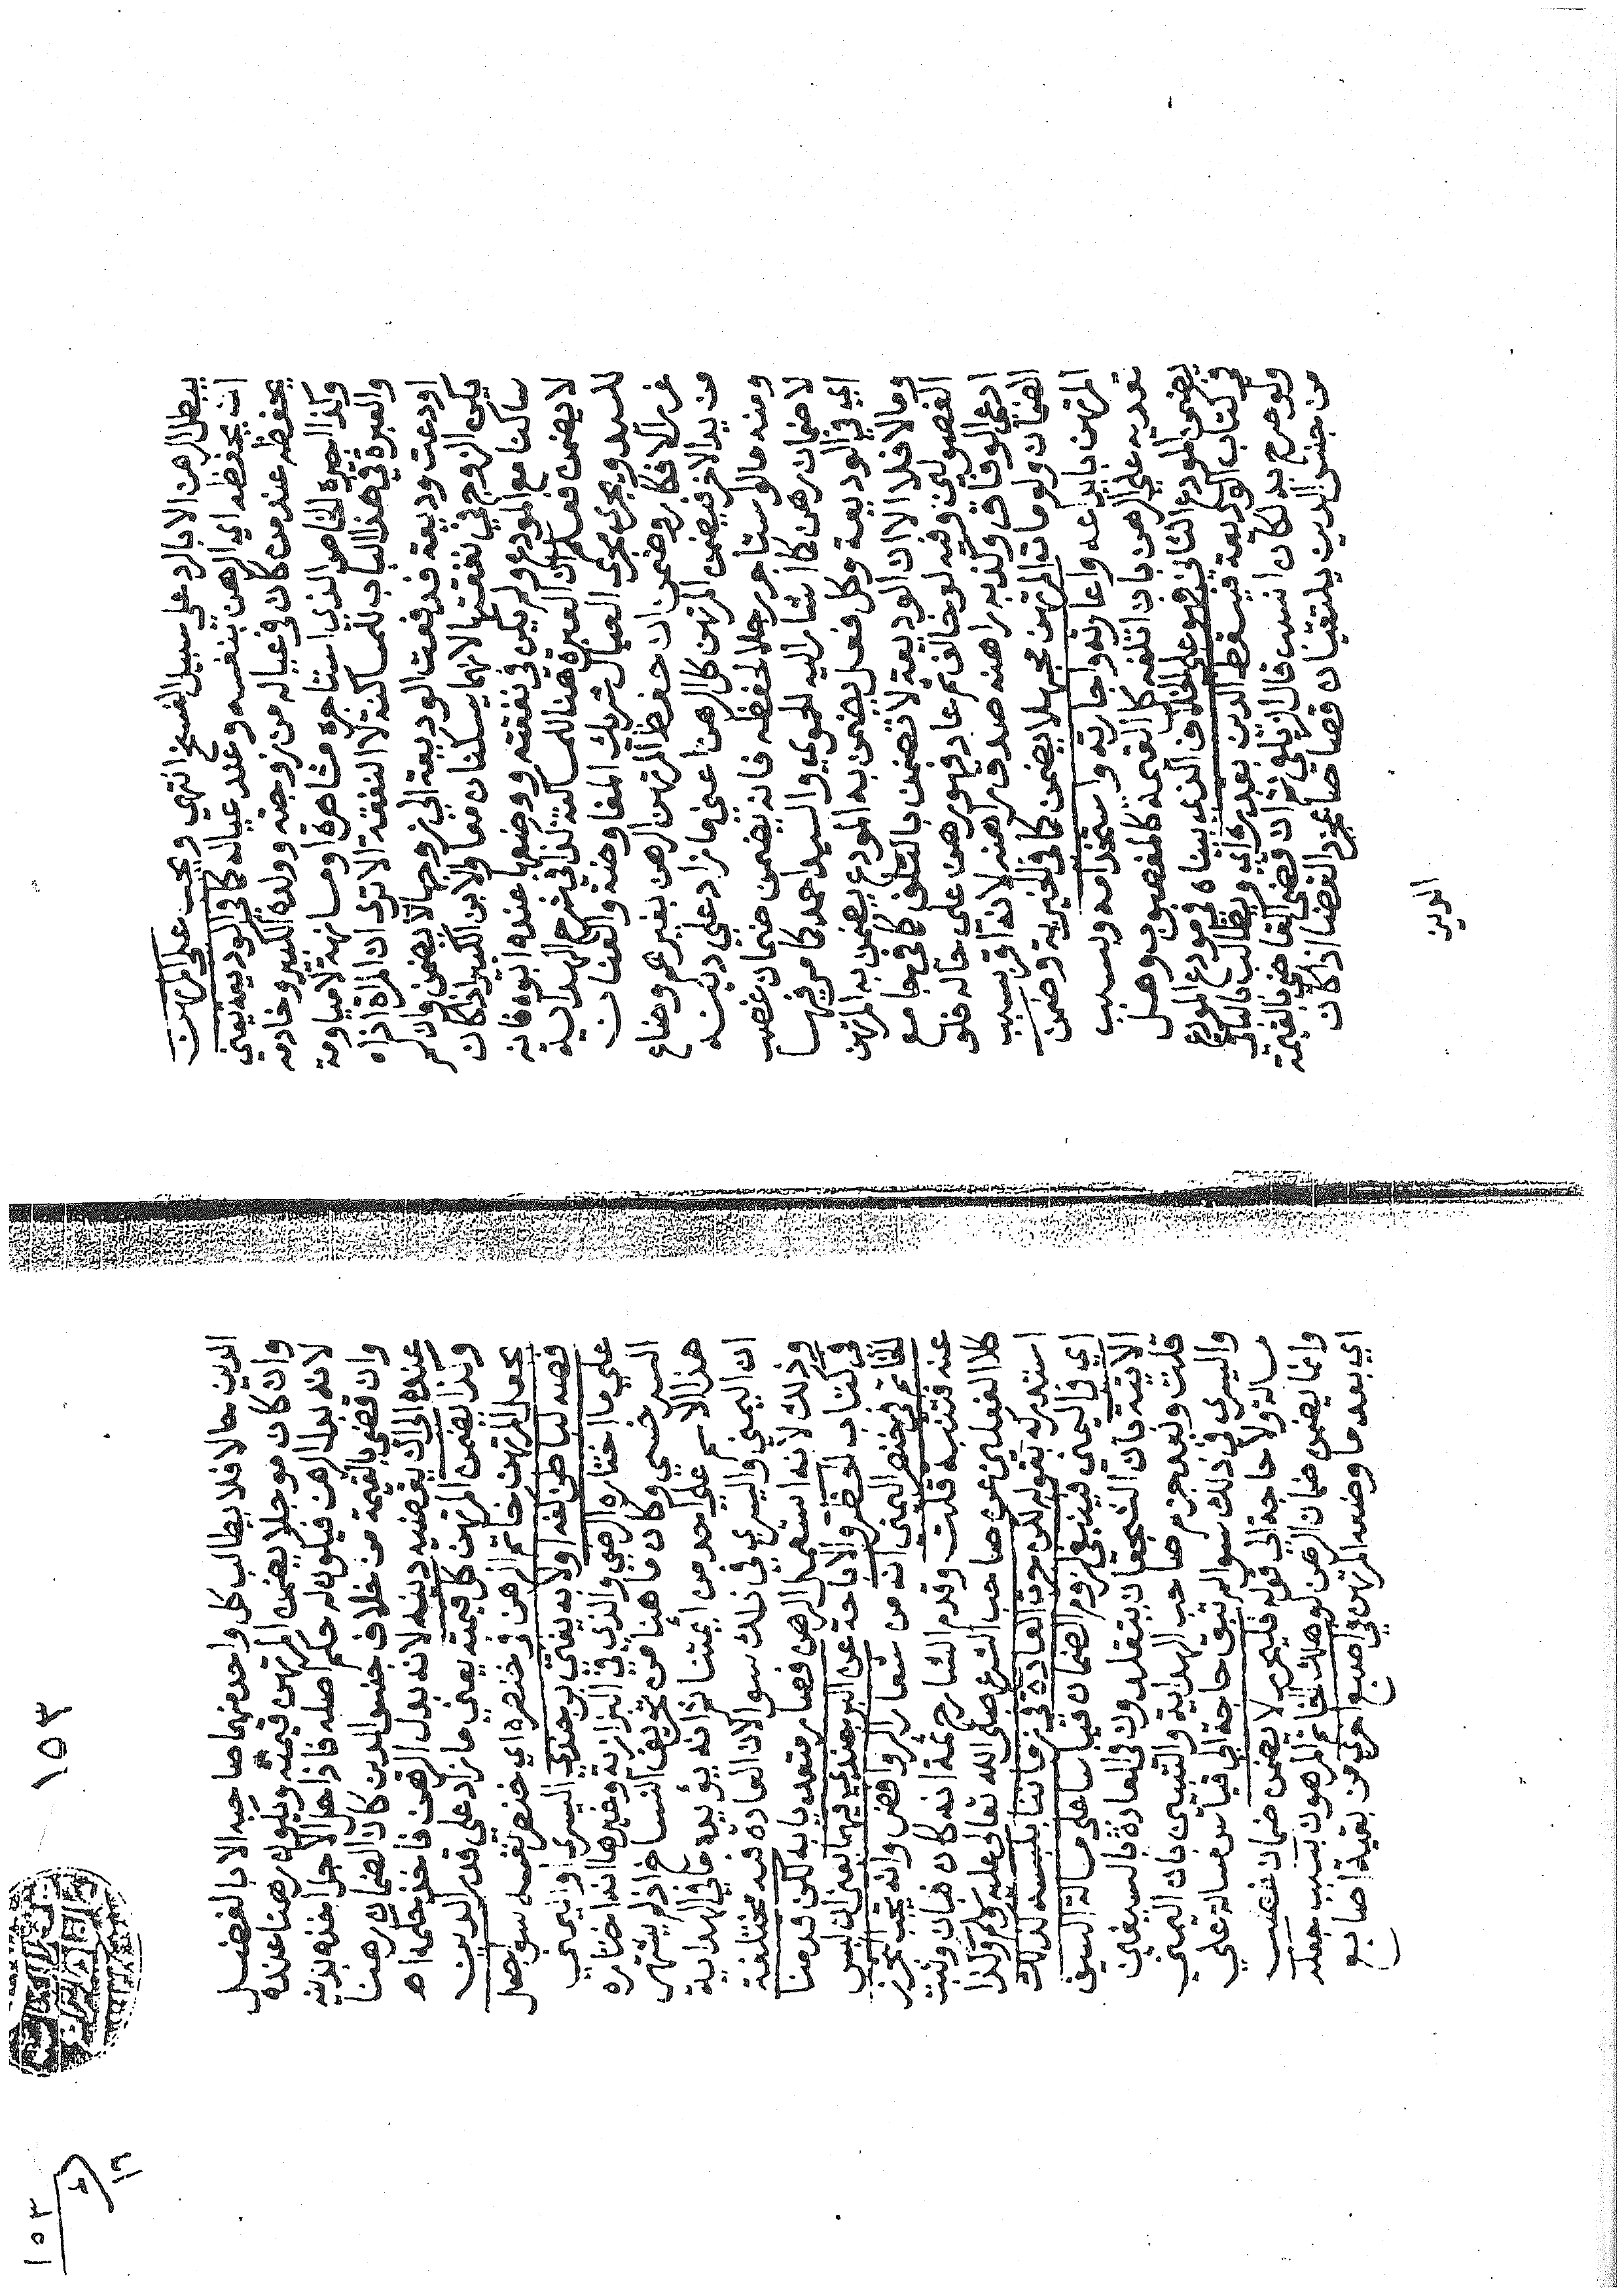 يبطل الرهن الا بالرد على سبيل الفسخ انتهى ويجب على المرتهن
ان يحفظه اي الرهن بنفسه وعند عياله كما في الوديعة يعني
يحفظه عند من كان في عياله من زوجته وولده الكبير وخادمه
وكذا اجيره الخاص الذي استاجره مشاهرة او مسانهة لا مياومة
والعبرة في هذا الباب للمساكنة لا للنفقة الا ترى ان المراة اذا
اودعت وديعة فدفعت الوديعة الى زوجها لا يضمن وان لم
يكن الزوج في نفقتها لانهما يسكنان معا والابن الكبير اذا كان
ساكنا مع المودع ولم يكن في نفقته ووضعها عنده ابوه فانه
لا يضمن فعلم ان العبرة هنا للمساكنة كذا في شرح الهداية
للسيد ويجري مجرى العيال شريك المفاوضة والعنان
غرر الافكار وضمن ان حفظ المرتهن الرهن بغيرهم وضاع
من يد الاخر فيضمن المرتهن كل الرهن اعني ما زاد على دينه
ومنه ما لو استاجر رجلا لحفظه فانه يضمن ضمان غصب
لا ضمان رهن كما اشار اليه الحموي والسيد احمد كما مر فيها
اي في الوديعة وكل فعل يضمن به المودع يضمن به المرتهن
وما لا فلا الا ان الوديعة لا تضمن بالتلف كما في جامع
الفصولين وفيه لو خالف ثم عاد فهو رهن على حاله فلو
ادعى الوفاق وكذبه راهنه صدق راهنه لانه اقر بسبب
الضمان ولو مات المرتهن مجهلا يضمن كما في الخيرية وضمن
المرتهن بايداعه واعارته واجارته واستخدامه وبسبب
تعديه على الرهن بان اتلفه كل القيمة كالمغصوب وهل
يضمن المودع الثاني فهو على الخلاف الذي بيناه في مودع المودع
في كتاب الوديعة فيسقط الدين بقدره اي ويطالب بالباقي
ولو صرح به لكان انسب قال الزيلعي ثم ان قضى القاضي بالقيمة
من جنس الدين يلتقيان قصاصا بمجرد القضا اذا كان
الدين
١٥٣
الدين حالا فلا يطالب كل واحد منهما صاحبه الا بالفضل
وان كان موجلا يضمن المرتهن قيمته ويكون رهنا عنده
لانه بدل الرهن فيكون له حكم اصله فاذا حل الاجل اخذه بدينه
وان قضى بالقيمة من خلاف جنس الدين كان الضمان رهنا
عنده الى ان يقضيه دينه لانه بدل الرهن فاخذ حكمه اه
وكذا يضمن المرتهن كل قيمته يعني ما زاد على قدر الدين
بجعل المرتهن خاتم الرهن في خنصره اي خنصر نفسه سواجعل
فصه لباطن كفه اولا به يفتى برجندي اليسرى او اليمنى
على ما اختاره الرضي والذي في البزازية وغيرها انه اختاره
السرخسي وكان ما هنا من تحريف النساخ اذ لم يشتهر
هذا الاسم على احد من ايمتنا ثم انه يؤيده ما في الهداية
ان اليمنى واليسرى في ذلك سوا لان العادة فيه مختلفة
وذلك لانه استعمل الرهن فصار متعديا به لكن قدمنا
في كتاب الحظر والاباحة عن البرجندي فيما يعزى ان لبس
الخاتم في خنصر اليمنى انه من شعار الروافض وانه يجب التحرز
عنه فتنبه قلت وقدم الشارح ثمة انه كان فبان وثبت
كلا الفعلين عن صاحب الشرع صلى الله تعالى عليه وسلم ولذا
استدركه بقوله لكن جرت العادة في زماننا بلبسه كذلك
اي في اليمنى فينبغي لزوم الضمان قياسا على مسالة السيف
الاتية بان الشجعان يتقلدون في العادة بالسيفين
قلت وبعد جزم صاحب الهداية والتبيين بان اليمنى
واليسرى في ذلك سوا لم تبق حاجة الى قياس مسالة على
مسالة ولا حاجة الى قوله فليحرر لا يضمن ضمان غصب
وانما يضمن ضمان الرهن لو هلك الخاتم المرهون بسبب جعله
اي بعد ما وضعه المرتهن في اصبع اخرى من بقية اصابع
١٥٣